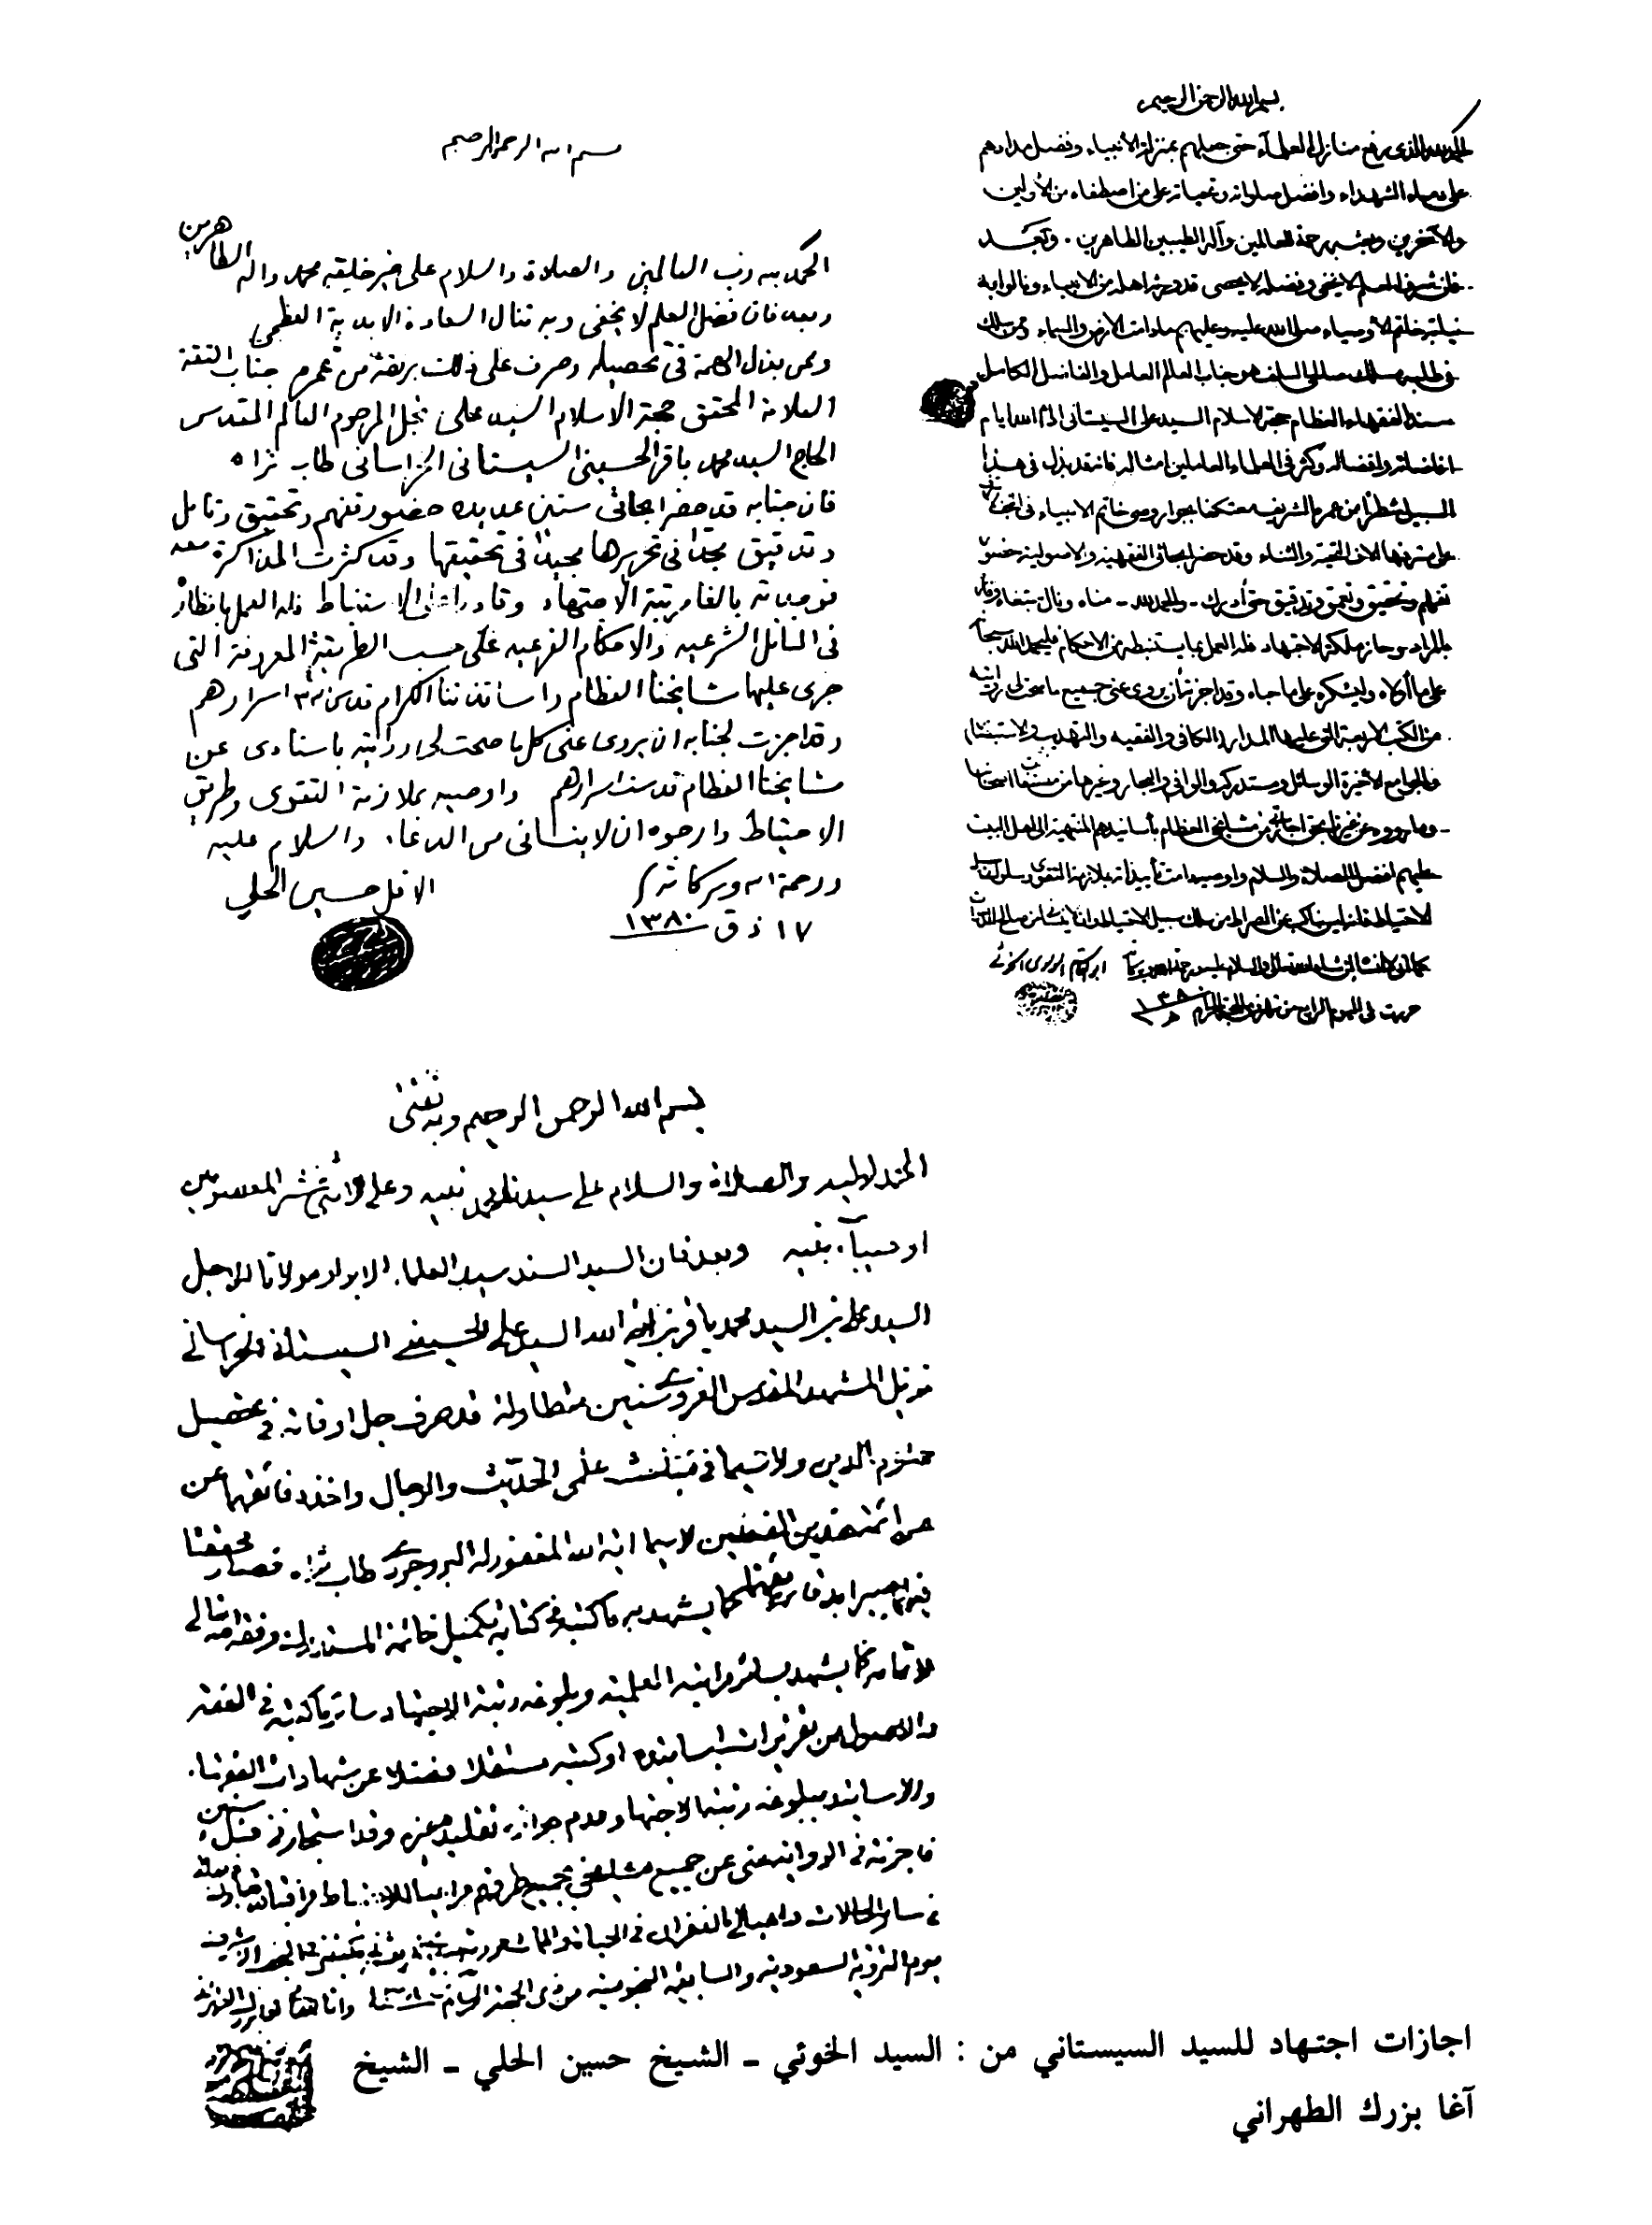 بسم الله الرحمن الرحيم
الحمد لله الذي رفع منازل العلماء حتى جعلهم بمنزلة الأنبياء وفضل مدادهم
على دماء الشهداء وافضل صلواته وتحياته على من اصطفاه من الأولين
والآخرين وبعثه رحمة للعالمين وآله الطيبين الطاهرين . وبعد
فان شرف العلم لا يخفى وفضله لا يحصى قد ورثه اهله من الانبياء ونالوا به
نيابة خاتم الأوصياء صلى الله عليه وعليهم ما دامت الارض والسماء وممن سلك
في طلبه مسلك صالحي السلف هو جناب العالم العامل والفاضل الكامل
سند الفقهاء العظام حجة الاسلام السيد علي السيستاني ادام الله ايام
افاضاته وافضاله وكثر في العلماء العاملين امثاله فانه قد بذل في هذا
السبيل شطراً من عمره الشريف معتكفا بجوار وصي خاتم الانبياء في النجف
على مشرفها آلاف التحية والثناء وقد حضر ابحاثي الفقهية والاصولية حضور
تفهم وتحقيق وتعمق وتدقيق حتى أدرك - والحمد لله - مناه ونال مبتغاه وفاز
بالمراد وحاز ملكة الاجتهاد فله العمل بما يستنبطه من الاحكام فليحمد الله سبحانه
على ما أولاه وليشكره على ما حباه وقد اجزته أن يروي عني جميع ما صحت لي روايته
من الكتب الاربعة التي عليها المدار الكافي والفقيه والتهذيب والاستبصار
والجوامع الاخيرة الوسائل ومستدركه والوافي والبحار وغيرها من مصنفات اصحابنا
وما رووه عن غيرنا بحق اجازتي من مشايخي العظام بأسانيدهم المنتهية الى اهل البيت
عليهم افضل الصلاة والسلام واوصيه دامت تأييداته بملازمة التقوى وسلوك سبيل
الاحتياط فانه ليس بناكب عن الصراط من سلك سبيل الاحتياط وان لا ينساني من صالح الدعوات
كما اني لا انساه ان شاء الله تعالى والسلام عليه ورحمة الله وبركاته ابو القاسم الموسوي الخوئي
حررت في اليوم الرابع من شهر ذي الحجة الحرام ١٣٨٠ هـ
بسم الله الرحمن الرحيم
الحمد لله رب العالمين والصلاة والسلام على خير خليقته محمد وآله الطاهرين
وبعد فان فضل العلم لا يخفى وبه تنال السعادة الابدية العظمى
وممن بذل الهمة في تحصيله وصرف على ذلك برهة من عمره جناب الثقة
العلامة المحقق حجة الاسلام السيد علي نجل المرحوم العالم المقدس
الحاج السيد محمد باقر الحسيني السيستاني الخراساني طاب ثراه
فان جنابه قد حضر ابحاثي سنين عديدة حضور تفهم وتحقيق وتأمل
وتدقيق مجدّاً في تحريرها مجيداً في تحقيقها وقد كثرت المذاكرة معه
فوجدته بالغا رتبة الاجتهاد وقادراً على الاستنباط فله العمل بانظاره
في المسائل الشرعيه والاحكام الفرعيه على حسب الطريقة المعروفة التي
جرى عليها مشايخنا العظام واساتذتنا الكرام قدس الله اسرارهم
وقد اجزت لجنابه ان يروي عني كل ما صحت لي روايته باسنادي عن
مشايخنا العظام قدست اسرارهم واوصيه بملازمة التقوى وطريق
الاحتياط وارجوه ان لا ينساني من الدعاء والسلام عليه
ورحمة الله وبركاته
الاقل حسين الحلي
١٧ ذ ق ١٣٨٠
بسم الله الرحمن الرحيم وبه ثقتي
الحمد لوليه والصلاة والسلام على سيدنا محمد نبيه وعلى الأئمة الاثني عشر المعصومين
اوصياء نبيه وبعد فان السيد السند سيد العلماء الابرار مولانا الاجل
السيد علي بن السيد محمد باقر بن آية الله السيد علي الحسيني السيستاني الخراساني
نزيل المشهد المقدس الغروي سنين متطاولة قد صرف جل اوقاته في تحصيل
علوم الدين ولا سيما في علمي الحديث والرجال واخذ دقائقهما عن
لا سيما آية الله المغفور له البروجردي طاب ثراه فصار محققا
فيهما بصيرا بدقائقهما كما يشهد به ما كتبه في كتابه تكميل خاتمة المستدرك وفقه الله تعالى
لاتمامه كما يشهد بسائر مراتبه العلمية وبلوغه رتبة الاجتهاد سائر ما كتبه في الفقه
والاصول من تقريرات اساتيذه او كتبه مستقلا فضلا عن شهادات الفقهاء
والاساتيذ ببلوغه رتبة الاجتهاد وعدم جواز تقليده غيره وقد استجازني قبل سنين
فاجزته في الرواية عني عن جميع مشايخي بجميع طرقهم
في سائر الحالات
يوم التروية السعودية من ذي الحجة الحرام ١٣٨٠
اجازات اجتهاد للسيد السيستاني من : السيد الخوئي - الشيخ حسين الحلي - الشيخ
آغا بزرك الطهراني